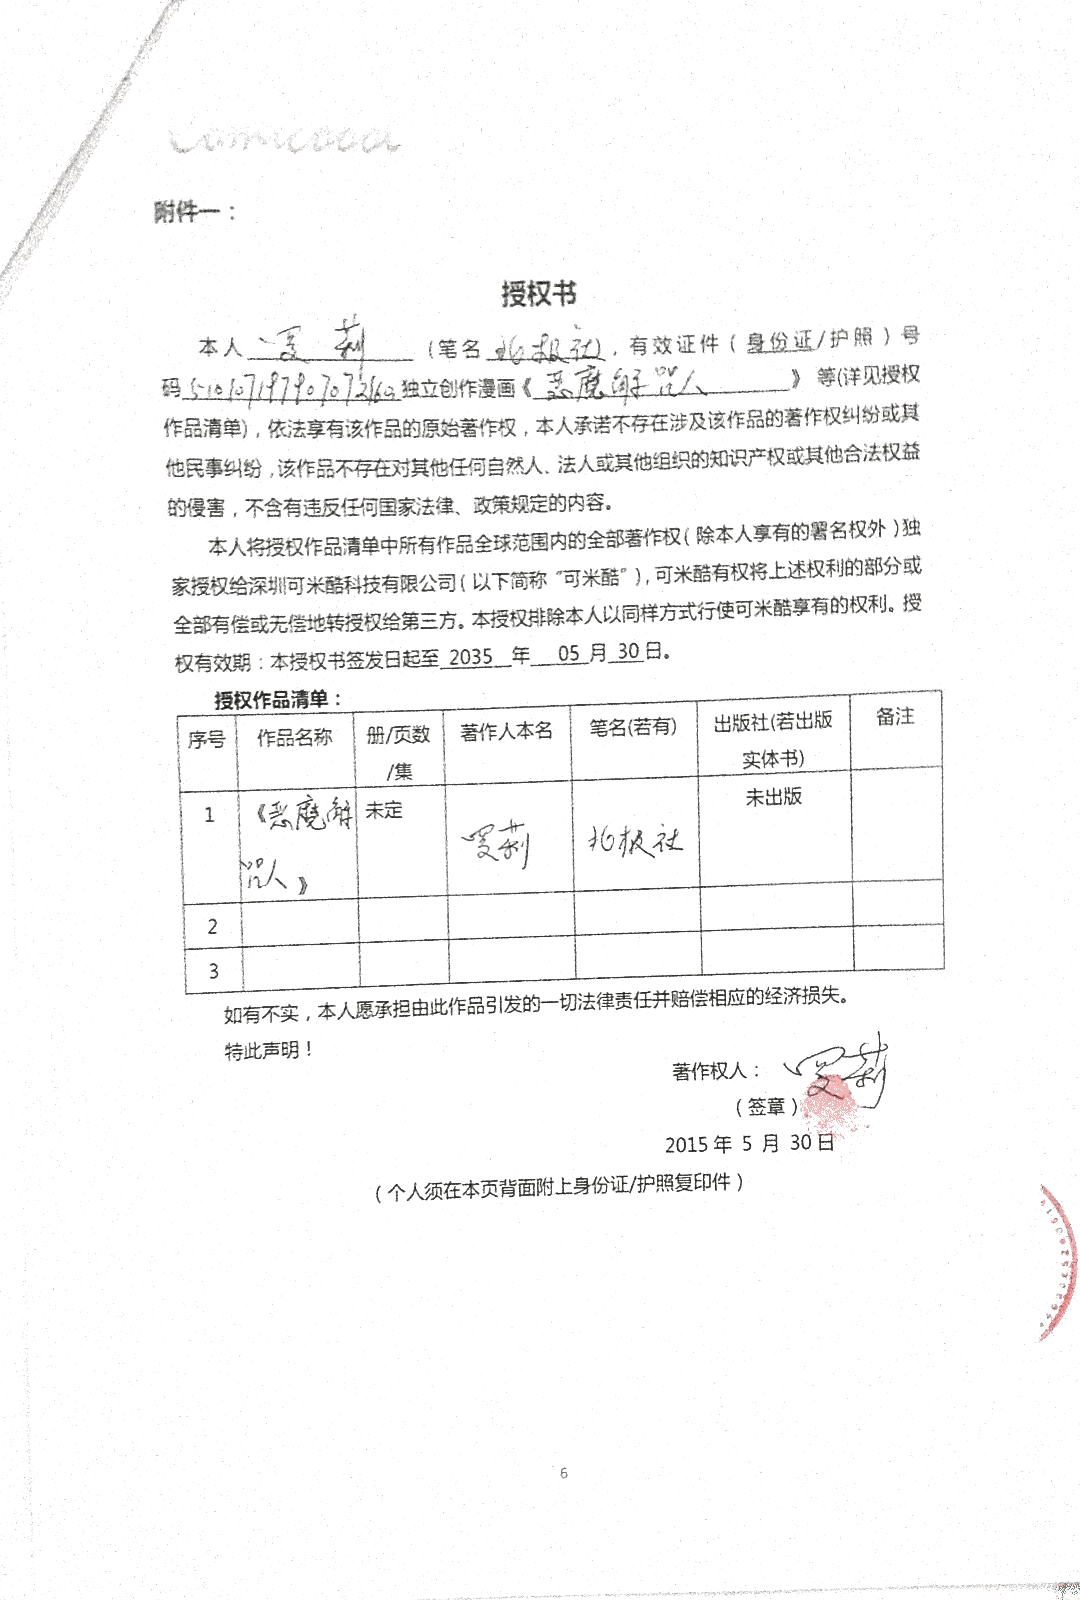 附件一：
授权书
本人 罗莉 （笔名 北极社），有效证件（身份证/护照）号
码 独立创作漫画《恶魔解咒人》等(详见授权
作品清单)，依法享有该作品的原始著作权，本人承诺不存在涉及该作品的著作权纠纷或其
他民事纠纷，该作品不存在对其他任何自然人、法人或其他组织的知识产权或其他合法权益
的侵害，不含有违反任何国家法律、政策规定的内容。
本人将授权作品清单中所有作品全球范围内的全部著作权（除本人享有的署名权外）独
家授权给深圳可米酷科技有限公司（以下简称“可米酷”），可米酷有权将上述权利的部分或
全部有偿或无偿地转授权给第三方。本授权排除本人以同样方式行使可米酷享有的权利。授
权有效期：本授权书签发日起至 2035 年 05 月 30 日。
授权作品清单：
序号 作品名称 册/页数 著作人本名 笔名(若有) 出版社(若出版 备注
/集 实体书)
1 《恶魔解 未定 罗莉 北极社 未出版
咒人》
2
3
如有不实，本人愿承担由此作品引发的一切法律责任并赔偿相应的经济损失。
特此声明！
著作权人： 罗莉
（签章）
2015 年 5 月 30 日
（个人须在本页背面附上身份证/护照复印件）
6